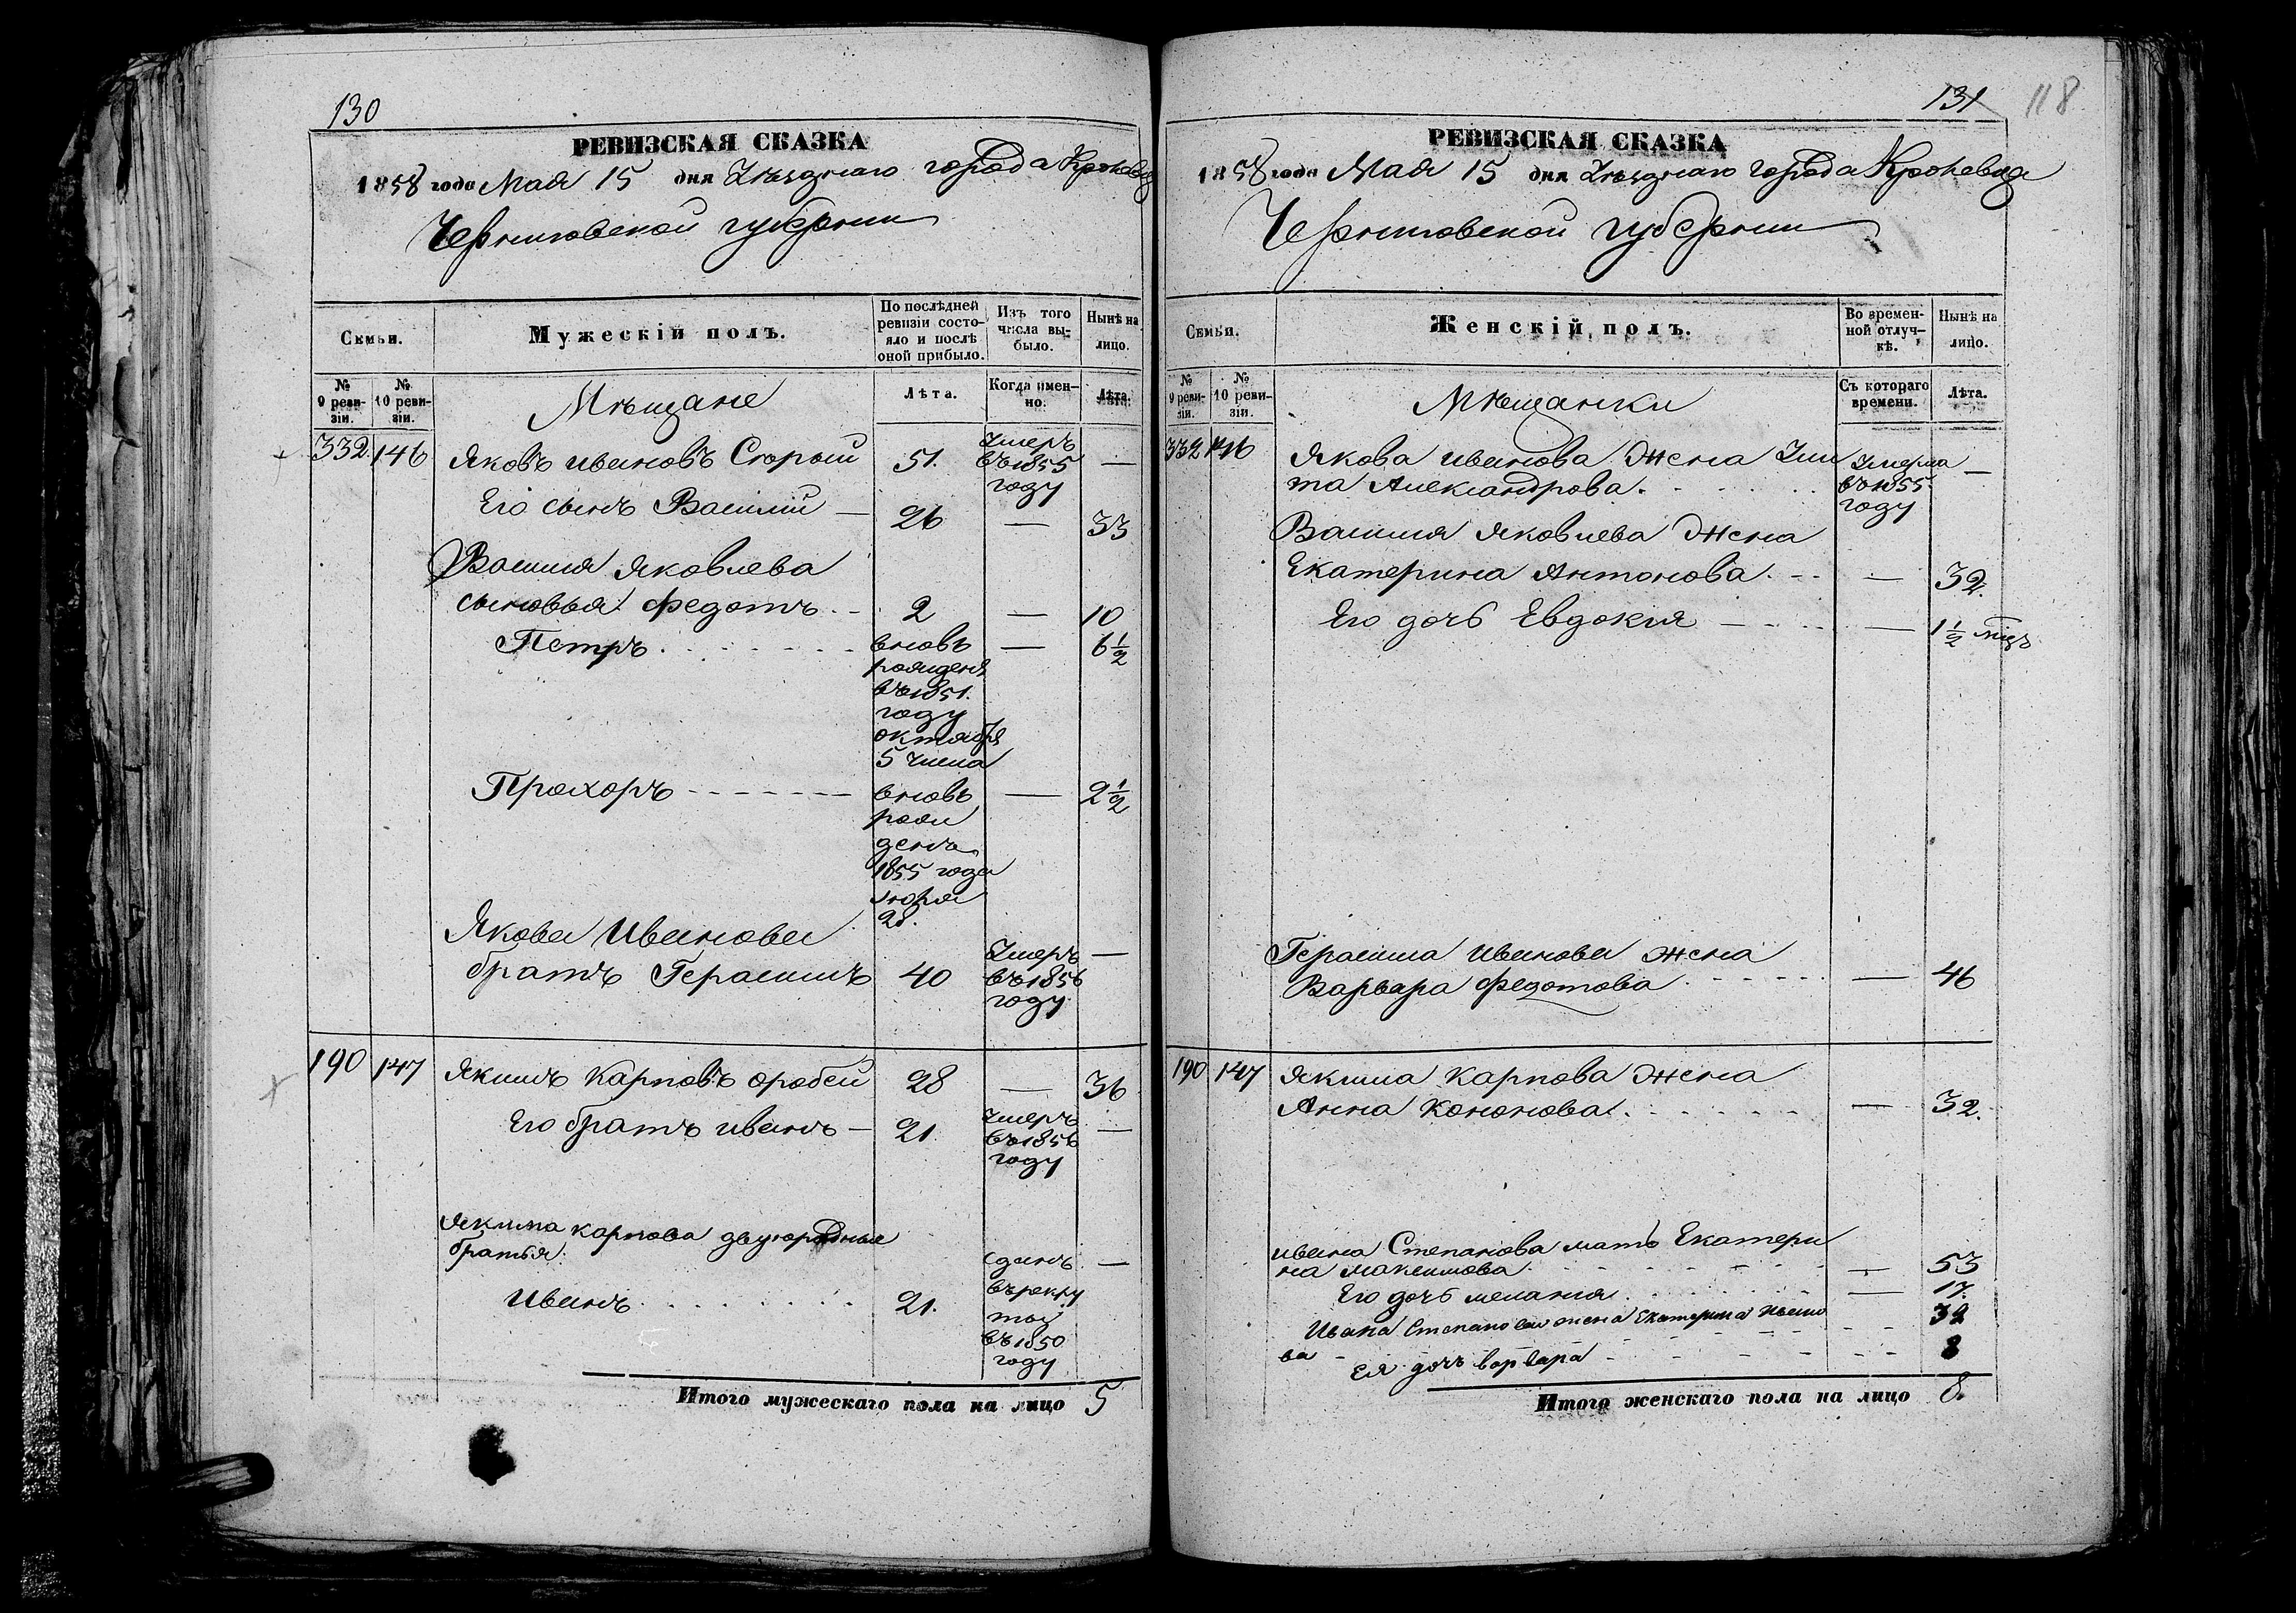 130
РЕВИЗСКАЯ СКАЗКА
1858 года Мая 15 дня Уѣзднаго города Кролевца
Черниговской губерніи
Семьи.
Мужескій полъ.
По послѣдней ревизіи состо-
яло и послѣ оной прибыло.
Изъ того числа вы-
было.
Нынѣ на лицо.
№ 9 реви-
зіи.
№ 10 реви-
зіи.
Мѣщане
Лѣта.
Когда имен-
но.
Лѣта.
332 146 Яковъ Ивановъ Старый 51. Умеръ въ 1855 году —
Его сынъ Василий — 26 — 33
Василия Яковлева
сыновья: Федотъ 2 — 10
Петръ вновь рожденъ въ 1851. году октября 5 числа — 6 1/2
Прохоръ вновь рожденъ 1855 года 28. — 2 1/2
Якова Иванова
братъ Герасимъ 40 Умеръ въ 1856 году —
190 147 Якимъ Карповъ 28 — 36
Его братъ Иванъ — 21. Умеръ въ 1856 году —
Якима Карпова двуюродные
братья:
Иванъ 21. сданъ въ рекруты въ 1850 году —
Итого мужескаго пола на лицо 5
131 118
РЕВИЗСКАЯ СКАЗКА
1858 года Мая 15 дня Уѣзднаго города Кролевца
Черниговской губерніи
Семьи.
Женскій полъ.
Во времен-
ной отлуч-
кѣ.
Нынѣ на лицо.
№ 9 реви-
зіи.
№ 10 реви-
зіи.
Мѣщанки
Съ котораго времени.
Лѣта.
332 146 Якова Иванова жена Ули
та Александрова. Умерла въ 1855 году —
Василия Яковлева жена
Екатерина Антонова. — 32.
Его дочь Евдокия — 1 1/2 мѣц
Герасима Иванова жена
Варвара Федотова — 46
190 147 Якима Карпова жена
Анна Кононова. — 32.
Ивана Степанова мать Екатери
на Максимова — 53
Его дочь Мелания — 17.
Ивана Степанова жена Екатерина
ва 32
Ея дочь Варвара 8
Итого женскаго пола на лицо 8.